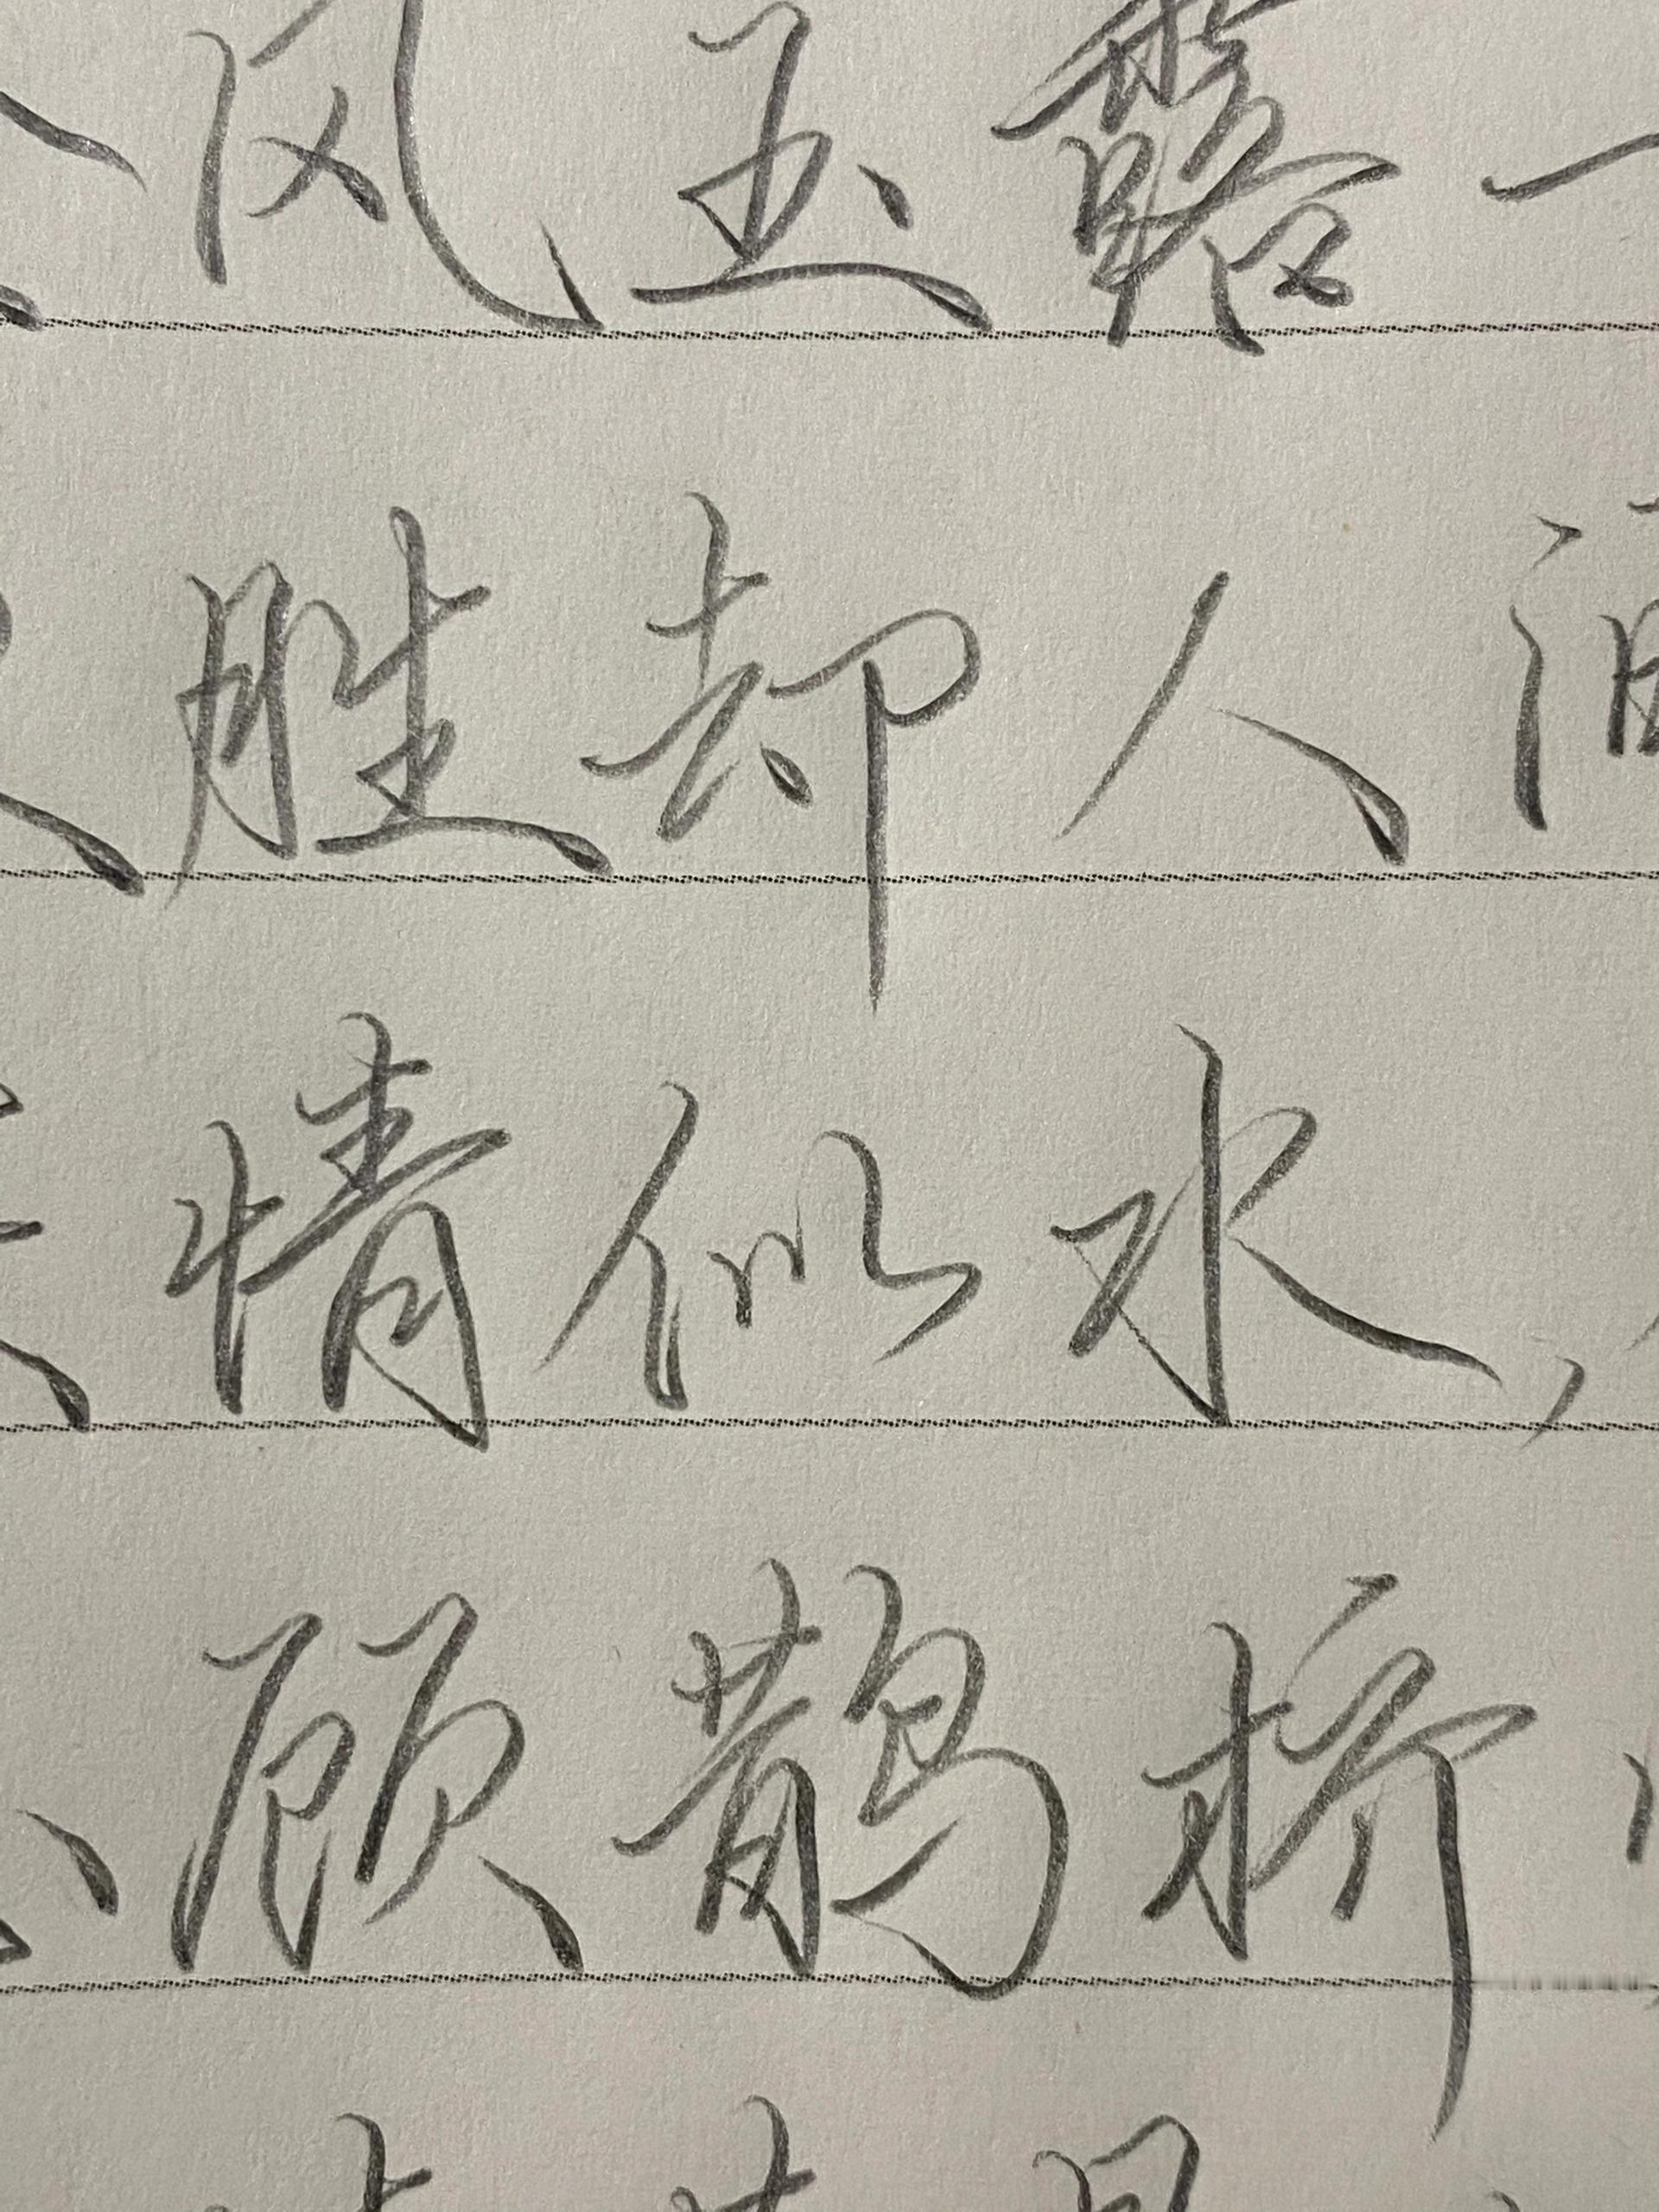 风玉露一
胜却人间
情似水,
顾鹊桥